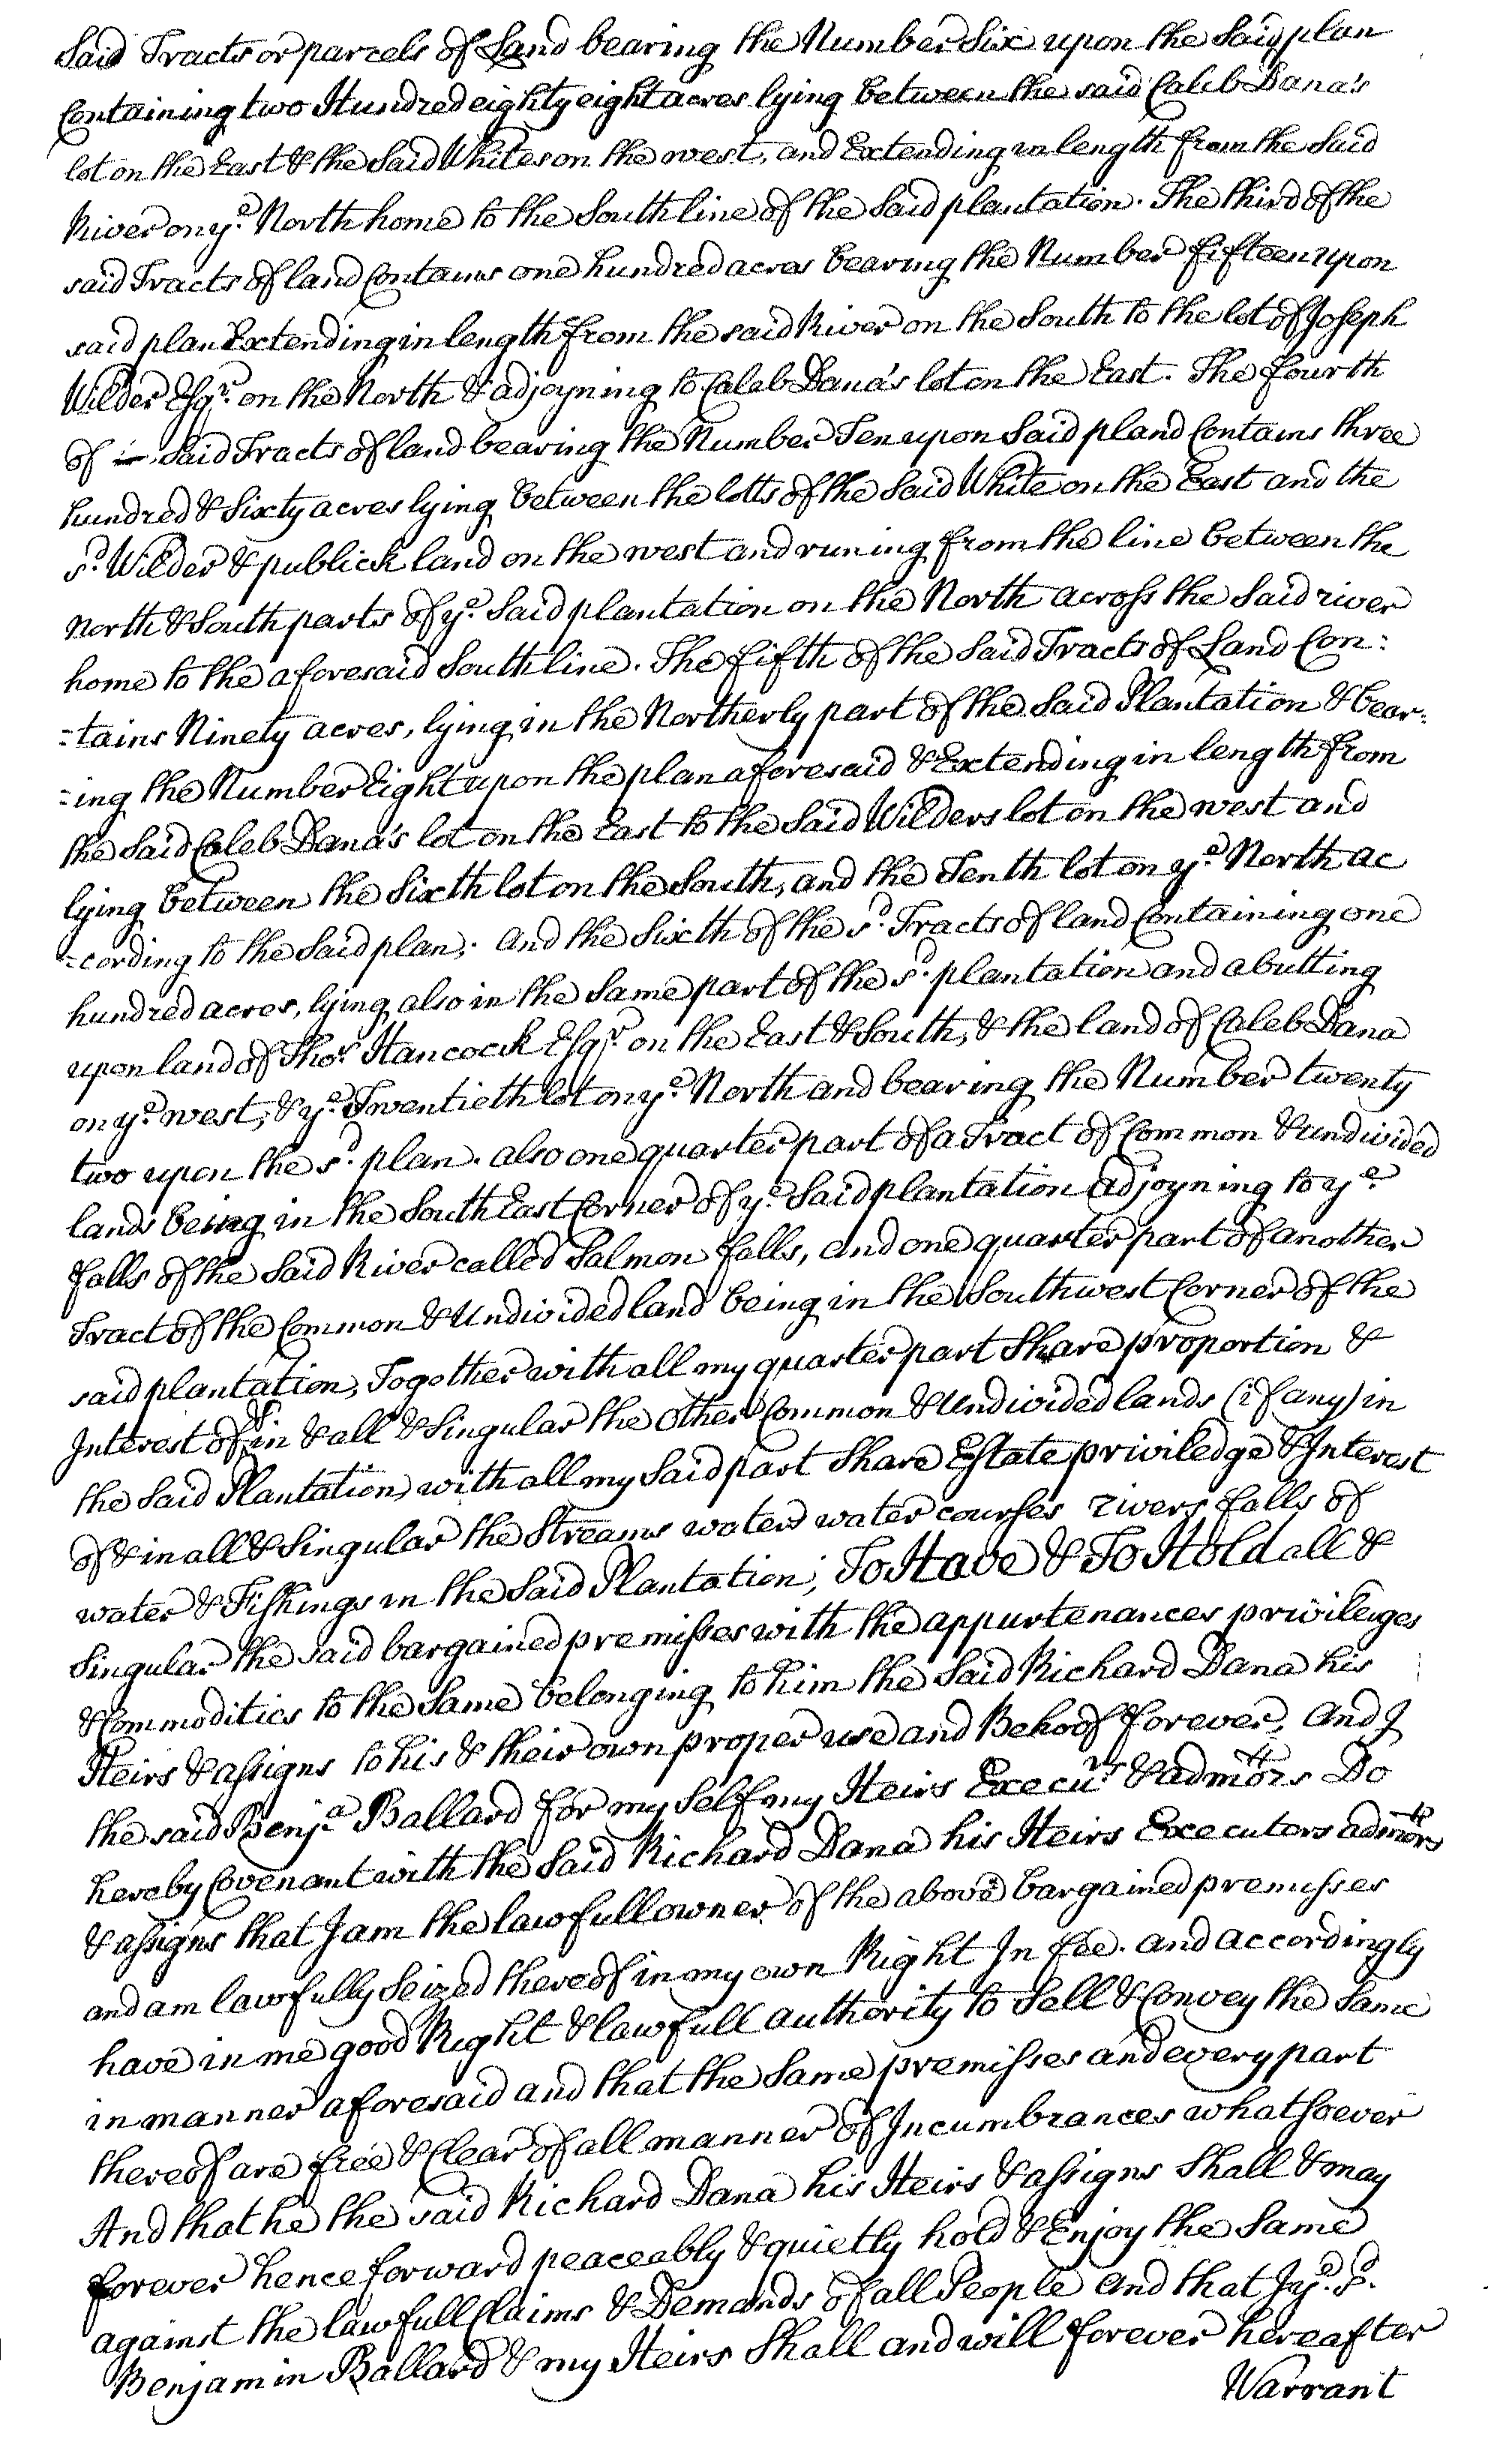 Said Tracts or parcels of Land bearing the Number Six upon the Said plan
Containing two Hundred eighty eight acres lying between the said Caleb Dana's
lot on the East & the Said Whites on the west, and Extending in length from the Said
River on yᵉ. North home to the South line of the Said plantation. The third of the
said Tracts of land Contains one hundred acres bearing the Number fifteen upon
said plan Extending in length from the said River on the South to the lot of Joseph
Wilder Esqʳ. on the North & adjoyning to Caleb Dana's lot on the East. The fourth
of Said Tracts of land bearing the Number Ten upon Said pland Contains three
hundred & Sixty acres lying between the lotts of the Said White on the East and the
sᵈ. Wilder & publick land on the west and runing from the line between the
North & South parts of yᵉ. Said plantation on the North across the Said river
home to the aforesaid South line. The fifth of the Said Tracts of Land Con:
:tains Ninety acres, lying in the Northerly part of the Said Plantation & bear:
:ing the Number Eight upon the plan aforesaid & Extending in length from
the Said Caleb Dana's lot on the East to the Said Wilders lot on the west and
lying between the Sixth lot on the South, and the Tenth lot on yᵉ. North ac
:cording to the Said plan; And the Sixth of the sᵈ. Tracts of land Containing one
hundred acres, lying also in the Same part of the sᵈ. plantation and abutting
upon land of Thoˢ. Hancock Esqʳ. on the East & South, & the land of Caleb Dana
on yᵉ. west, & yᵉ. Twentieth lot on yᵉ. North and bearing the Number twenty
two upon the sᵈ. plan. also one quarter part of a Tract of Common & undivided
lands being in the South East Corner of yᵉ. Said plantation adjoyning to yᵉ.
falls of the Said River called Salmon falls, and one quarter part of another
Tract of the Common & Undivided land being in the Southwest Corner of the
said plantation, Together with all my quarter part Share proportion &
Interest of in & all & Singular the other Common & Undivided lands (if any) in
the Said Plantation, with all my Said part Share Estate priviledge & Interest
of & in all & Singular the Streams waters water courses rivers falls of
water & Fishings in the Said Plantation; To Have & To Hold all &
Singular the said bargained premisses with the appurtenances privileiges
& Commodities to the Same belonging to him the Said Richard Dana his
Heirs & assigns to his & their own proper use and Behoof forever, And I
the said Benjᵃ Ballard for my Self my Heirs Execuʳˢ & admors Do
hereby Covenant with the Said Richard Dana his Heirs Executors admors
& assigns that I am the lawfull owner of the above bargained premisses
and am lawfully Seized thereof in my own Right In fee. and accordingly
have in me good Right & lawfull authority to Sell & Convey the Same
in manner aforesaid and that the Same premisses and every part
thereof are free & Clear of all manner of Incumbrances whatsoever
And that he the said Richard Dana his Heirs & assigns Shall & may
forever henceforward peaceably & quietly hold & Enjoy the Same
against the lawfull Claims & Demands of all People And that I yᵉ. sᵈ.
Benjamin Ballard & my Heirs Shall and will forever hereafter
Warrant